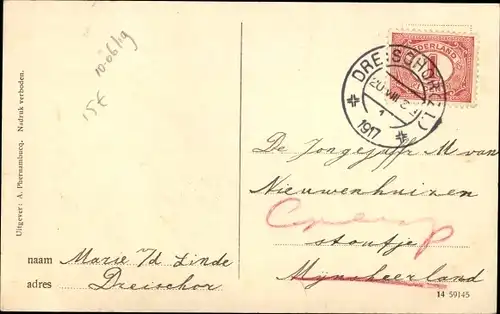 10-06/19
15£
Uitgever: A. Phernambucq. Nadruk verboden.
NEDERLAND
DREISCHOR
20 VIII
1
1917
De Jongejuffr M van
Nieuwenhuizen
stoutje
Mynsheerland
naam Marie v/d Linde
adres Dreischor
14 59145